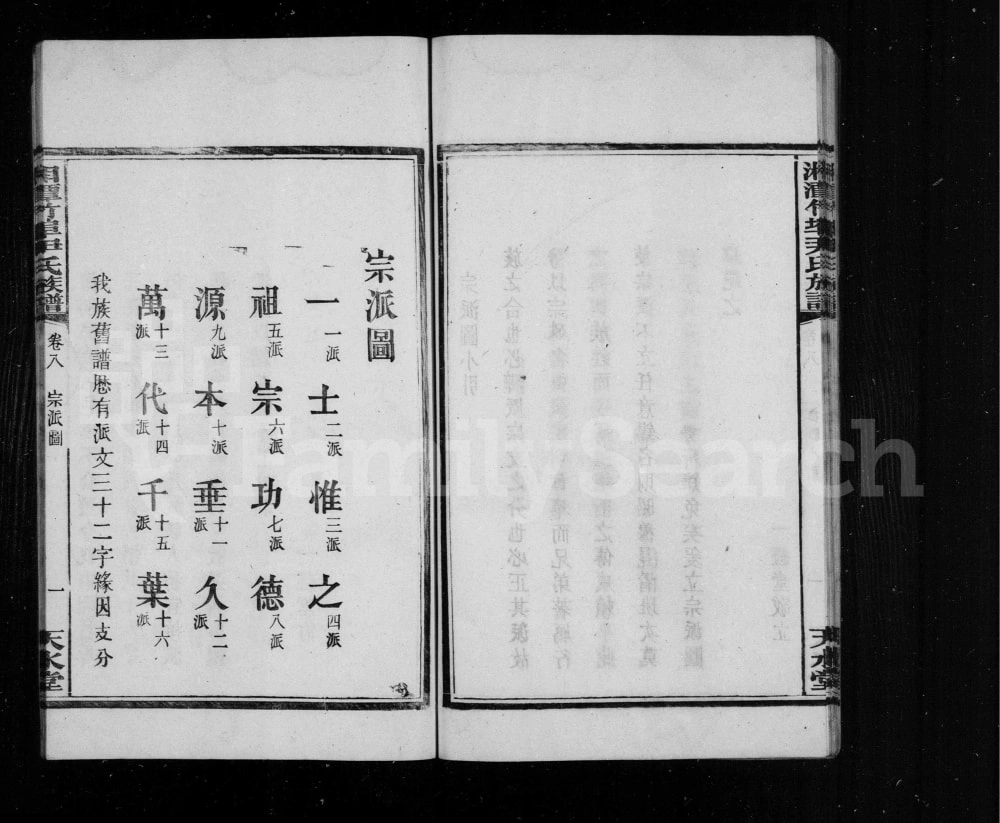 湘潭竹埠尹氏族譜
天水堂
宗派圖
一一派 士二派 惟三派 之四派
祖五派 宗六派 功七派 德八派
源九派 本十派 垂十一派 久十二派
萬十三派 代十四派 千十五派 葉十六派
我族舊譜厯有派文三十二字緣因支分
湘潭竹埠尹氏族譜 卷八 宗派圖 一 天水堂
FamilySearch